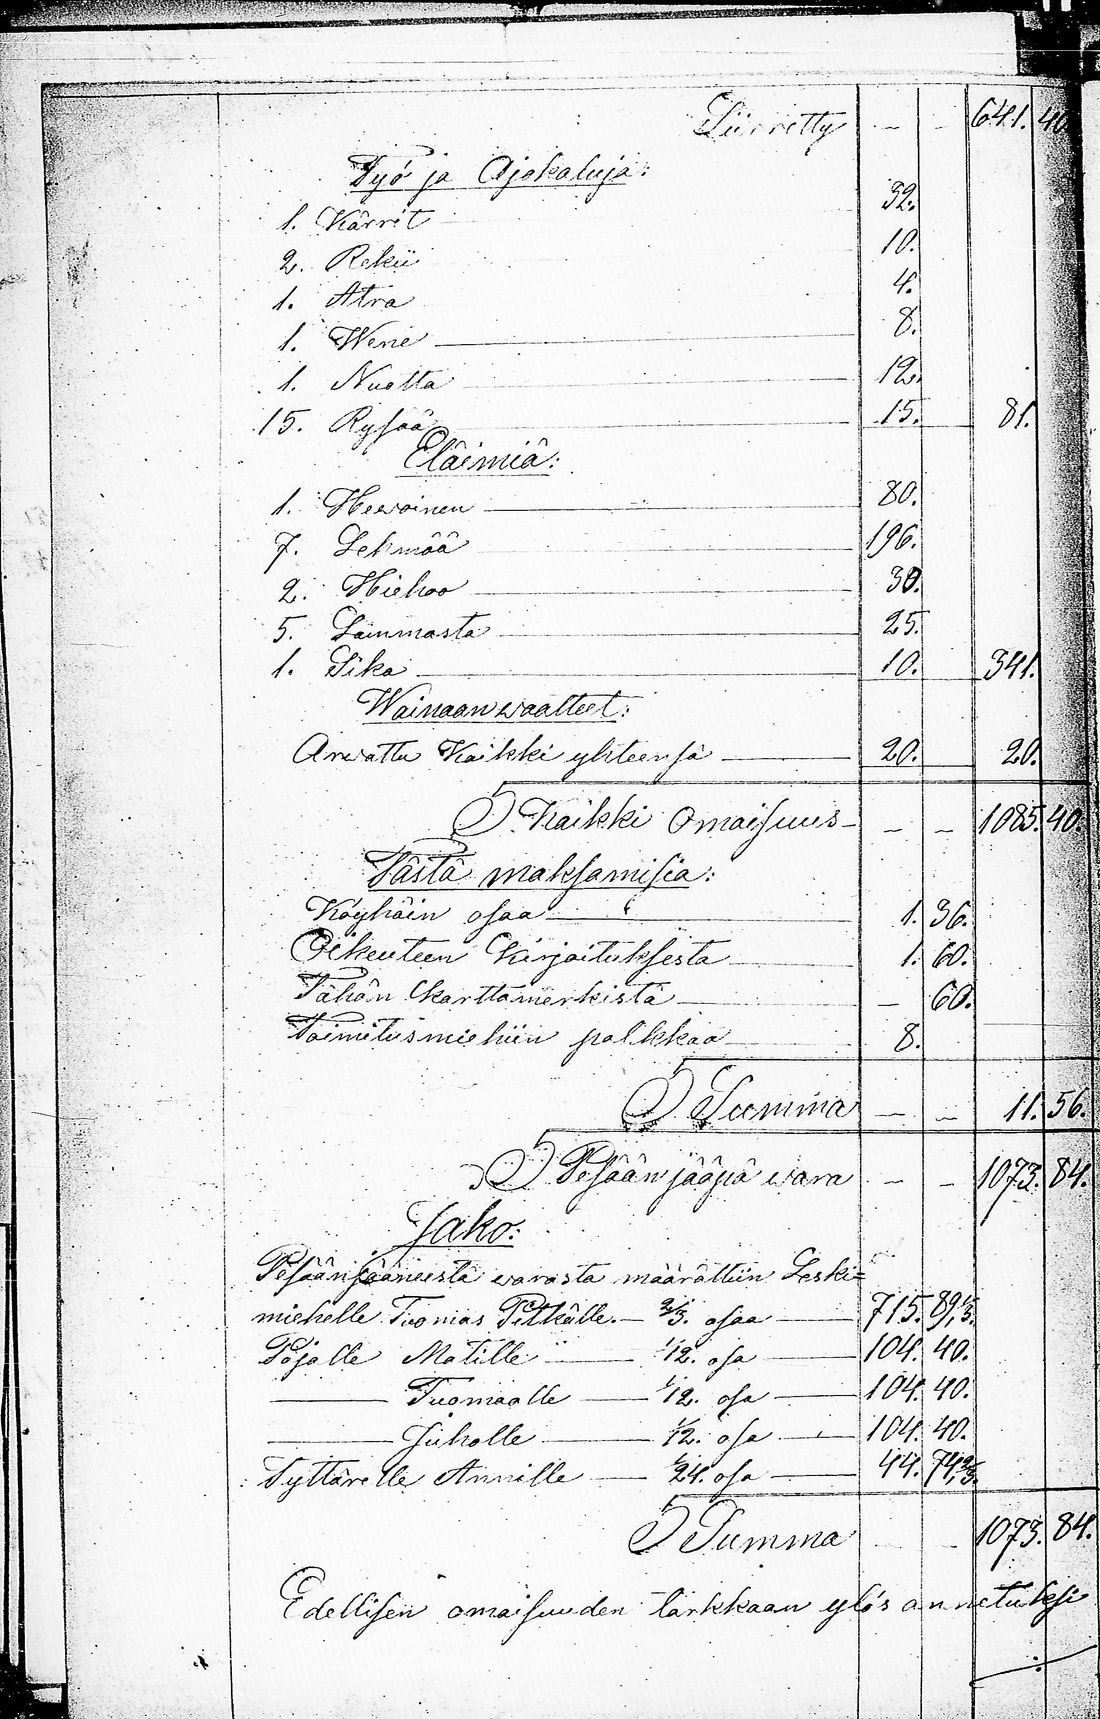 Siirretty – – 641. 40.
Työ ja Ajokaluja:
1. Kärrit 32.
2. Rekii 10.
1. Atra 4.
1. Wene 8.
1. Nuotta 12.
15. Rysää 15. 81.
Eläimiä:
1. Hewoinen 80.
7. Lehmää 196.
2. Hiehoo 30.
5. Lammasta 25.
1. Sika 10. 341.
Wainaan waatteet:
Arwattu Kaikki yhteensä 20. 20.
S. Kaikki Omaisuus – – 1085. 40.
Tästä maksamisia:
Köyhäin osaa 1. 36.
Oikeuteen Kirjoituksesta 1. 60.
Tähän Karttamerkistä – 60.
Toimitusmiehiin palkkaa 8.
S. Summa – – 11. 56.
S. Pesään jääpä wara – – 1073. 84.
Jako:
Pesäänjääneestä warasta määrättiin Leski=
miehelle Tuomas Pitkälle. – 2/3. osaa 715. 89,1/3.
Pojalle Matille 1/12. osa 104. 40.
Tuomaalle 1/12. osa 104. 40.
Juholle 1/12. osa 104. 40.
Tyttärelle Annille 1/24. osa 44. 74,2/3.
S Summa – 1073. 84.
Edellisen omaisuuden tarkkaan ylös annetuksi